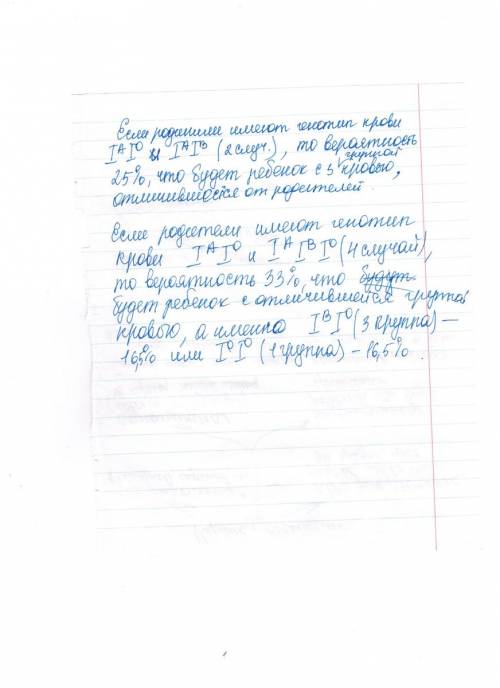 Если родители имеют генотип крови
IᴬI⁰ и IᴬIᴮ (2 случ.), то вероятность
25%, что будет ребенок с 3 группой кровью,
отличившиеся от родителей.
Если родители имеют генотип
крови IᴬI⁰ и IᴬIᴮI⁰ (4 случай),
то вероятность 33%, что будут
будет ребенок с отличившейся группой
кровью, а именно IᴮI⁰ (3 группа) —
16,5% или I⁰I⁰ (1 группа) – 16,5%.
1